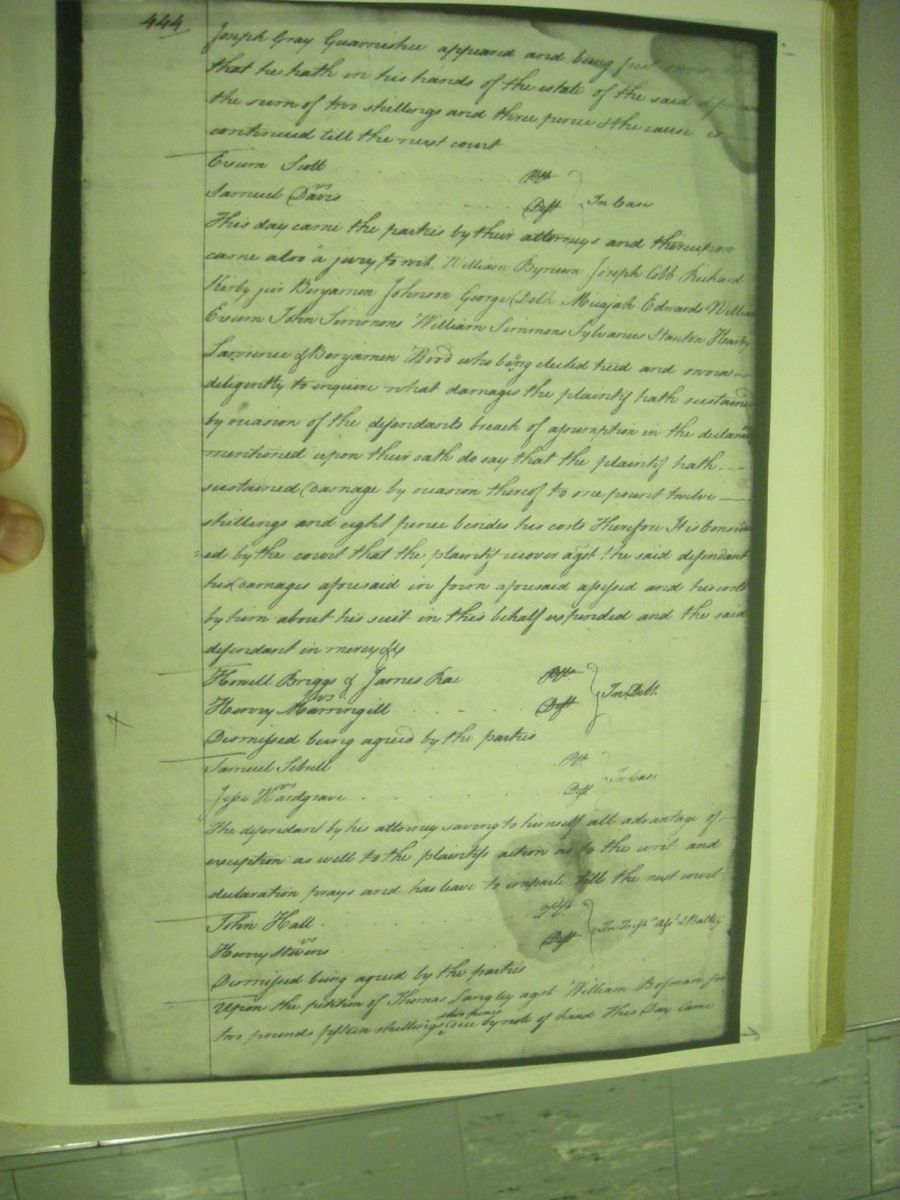 444
Joseph Gray Guarnishee appeared and being first sworn
that he hath in his hands of the estate of the said
the sum of two shillings and three pence & the cause is
continued till the next court
Exum Scott Plt
vs In Case
Samuel Davis Deft
This day came the parties by their attorneys and thereupon
came also a jury to wit. William Bynum Joseph Cobb Richard
Kerby jur Benjamen Johnson George Delk Micajah Edwards William
Exum John Simmons William Simmons Sylvanus Stanton
Lawrence & Benjamin who being elected tried and sworn
deligently to inquire what damages the plaintif hath sustained
by ocasion of the defendants breach of assumption in the
mentioned upon their oath do say that the plaintif hath
sustained Damage by ocasion thereof to one pount twelve
shillings and eight pence besides his costs Therefore It is Consider
ed by the court that the plaintif recover agst the said defendant
his Damages aforesaid in form aforesaid assessed and his costs
by him about his suit in this behalf expended and the said
defendant in mercy &c
Howell Briggs & James Rae Plt
vs In Debt
Henry Marringill Deft
Dismissed being agreed by the parties
Samuel Sebrell Plt
vs In Case
Jesse Hardgrave Deft
The defendant by his attorney saving to himself all advantage of
exception as well to the plaintifs action as to the writ and
declaration prays and has leave to imparle till the next court
John Hall Plt
vs In Tresps Asst & Battry
Henry Stevens Deft
Dismissed being agreed by the parties
Upon the petition of Thomas Langley agst William Bosman for
two pounds fifteen shillings & six pence due by note of hand This Day came